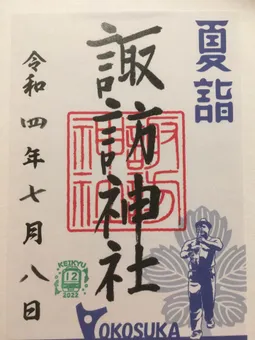 夏詣
諏訪神社
諏訪神社
令和四年七月八日
KEIKYU
12
2022
YOKOSUKA